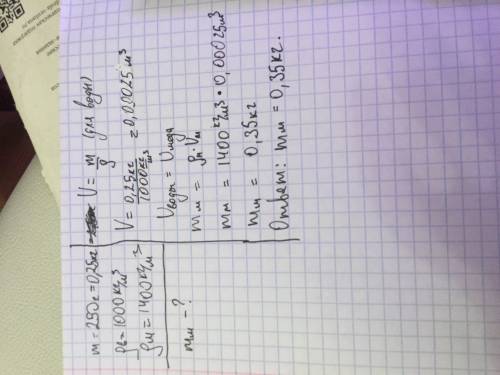 m = 250г = 0,25кг
ρв = 1000 кг/м³
ρм = 1400 кг/м³
mм - ?
V = m/ρ (для воды)
V = 0,25кг / 1000 кг/м³ = 0,00025 м³
Vводы = Vмёда
mм = ρм · Vм
mм = 1400 кг/м³ · 0,00025 м³
mм = 0,35 кг
Ответ: mм = 0,35кг.